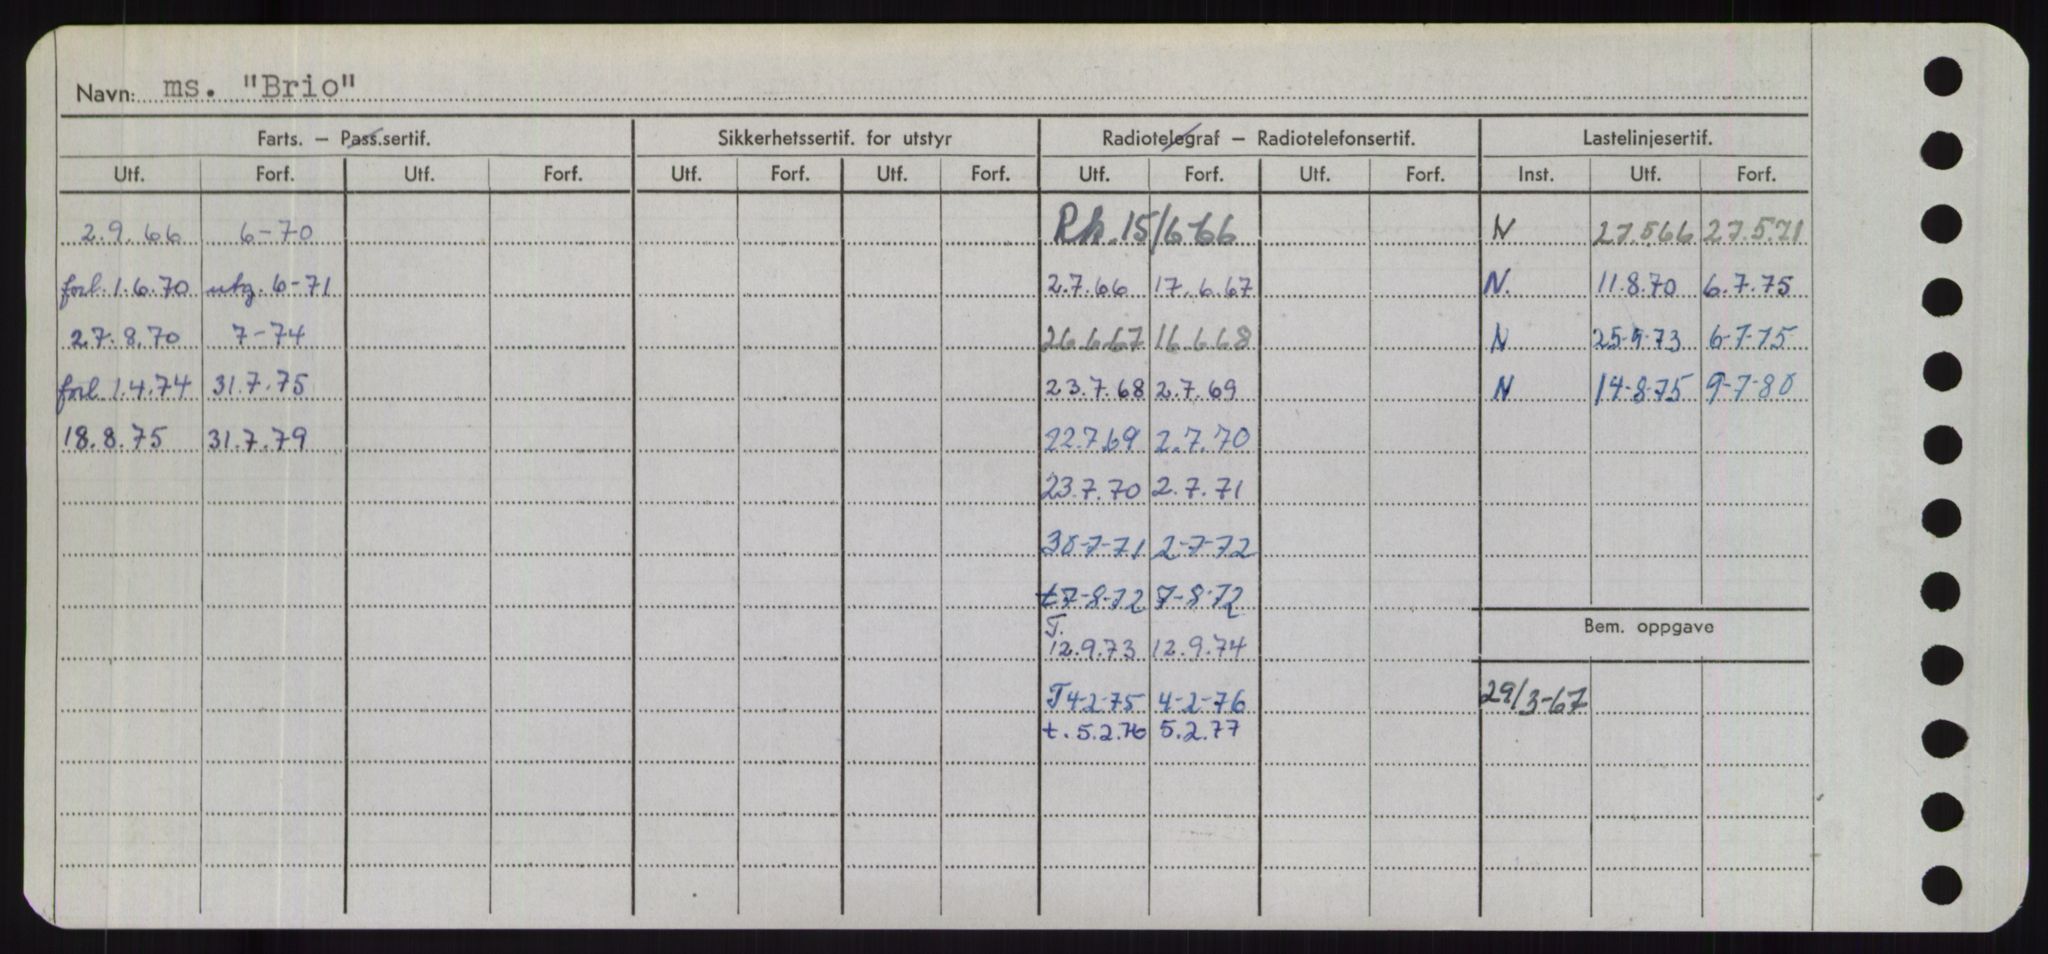 Navn: ms. "Brio"
Farts. – Pass.sertif. Sikkerhetssertif. for utstyr Radiotelegraf – Radiotelefonsertif. Lastelinjesertif.
Utf. Forf. Utf. Forf. Utf. Forf. Utf. Forf. Utf. Forf. Utf. Forf. Inst. Utf. Forf.
2.9.66 6-70 Rk. 15/6-66 N 27.566 27.5.71
forl. 1.6.70 utg. 6-71 2.7.66 17.6.67 N. 11.8.70 6.7.75
27.8.70 7-74 26.6.67 16.6.68 N 25-9-73 6-7-75
forl 1.4.74 31.7.75 23.7.68 2.7.69 N 14-8-75 9-7-80
18.8.75 31.7.79 22.7.69 2.7.70
23.7.70 2.7.71
30-7-71 2-7-72
t7-8-72 7-8-72
T.
12.9.73 12.9.74
Bem. oppgave
T4-2-75 4-2-76 29/3-67
t. 5.2.76 5.2.77